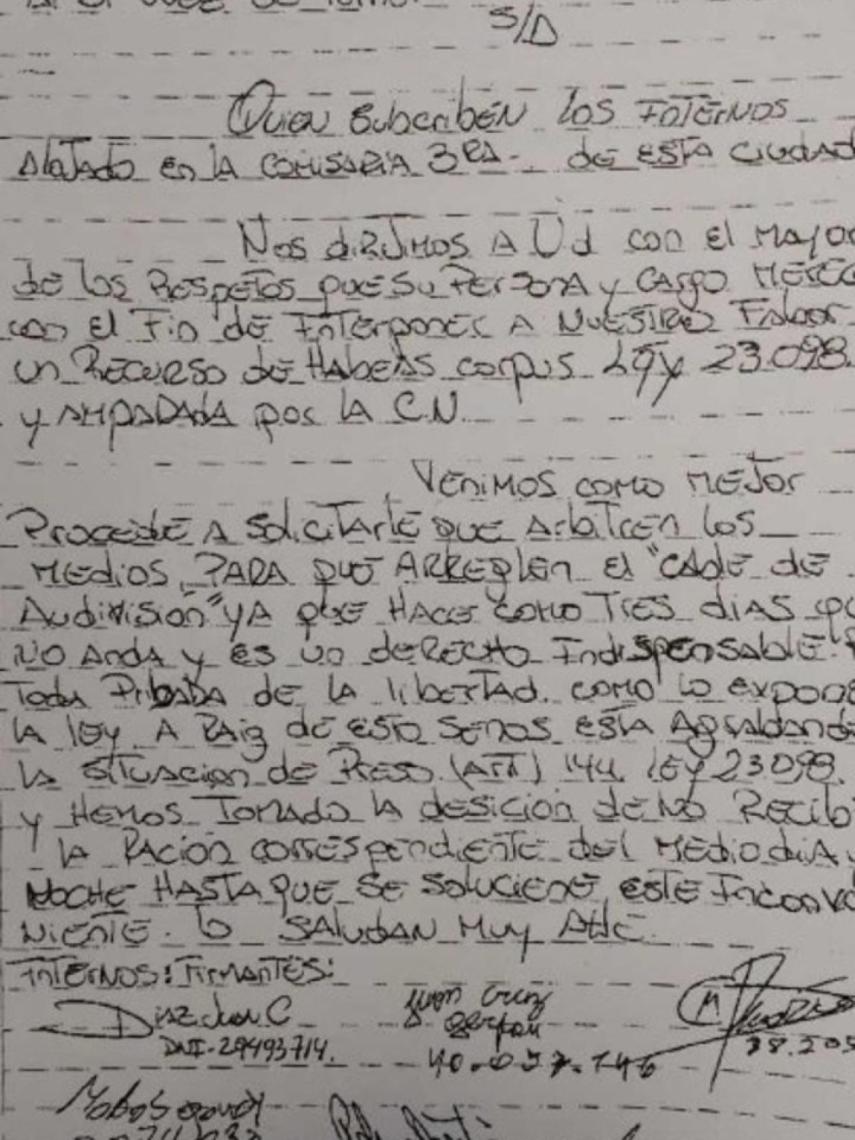 S/D
Quien Subscriben los Internos
Alojado en la comisaria 3ra. de esta ciudad
Nos dirijimos A Ud con el mayor
de los Respetos que su Persona y cargo merec
con el Fin de Interponer A Nuestro Fabor
un Recurso de Habeas corpus Ley 23.098.
y Ampadada por la C.N.
Venimos como mejor
Procede A solicitarle que Arbitren los
medios, para que Arreglen el "cable de
Audivision" ya que hace como Tres dias q
No Anda y es un derecho Indispensable.
Toda Pribada de la libertad. como lo expone
la ley A Raiz de esto senos esta
la situacion de Preso (Art) 144. ley 23098.
y Hemos Tomado la desicion de No Recib
la Racion correspondiente del Mediodia y
Noche Hasta que se solucione este Inconve
niente. Lo Saludan Muy Atte.
Internos: Firmantes:
Diaz Juan C Juan Cruz
DNI-29493714. 40.037.146 38.205